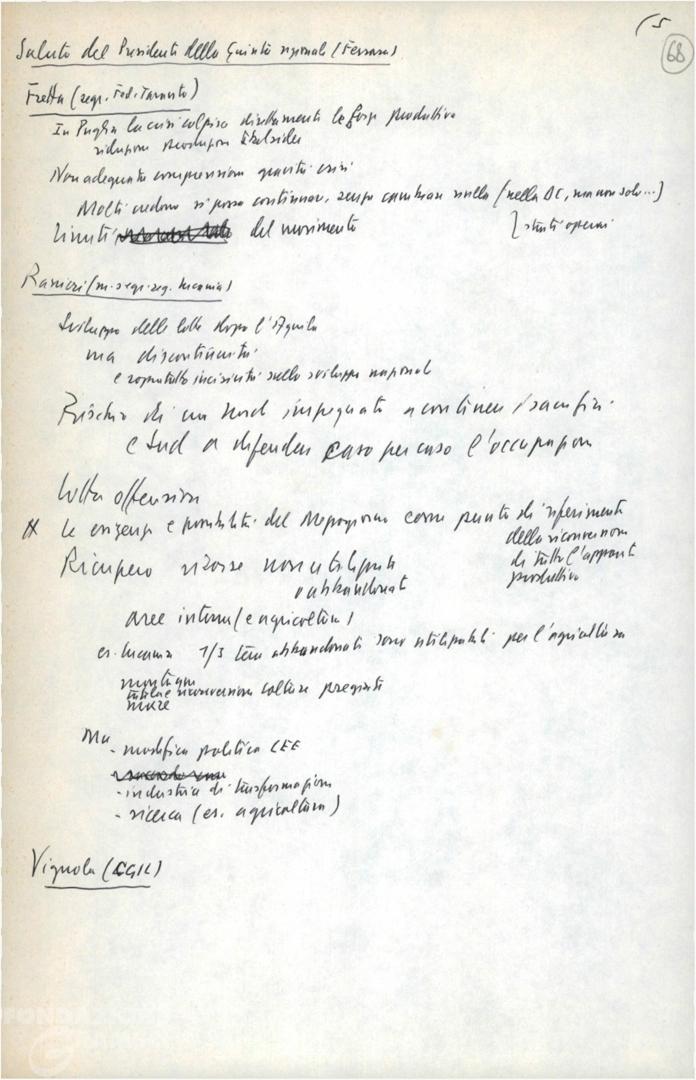 15
68
Saluto del Presidente della Giunta regionale (Ferrara)
Fretta (segr. Fed. Taranto)
In Puglia la crisi colpisce direttamente le forze produttive
riduzioni produzioni Italsider
Non adeguata comprensione gravità crisi
Molti credono si possa continuare, senza cambiare nulla (nella DC, ma non solo...)
Limiti del movimento
strati operai
Ranieri (m. segr. reg. Lucania)
Sviluppo delle lotte dopo l'Aquila
ma discontinuità
e soprattutto incisività sullo sviluppo nazionale
Rischio di un Nord impegnato a contenere i sacrifici
e Sud a difendere caso per caso l'occupazione
Lotta offensiva
Le esigenze e possibilità del Mezzogiorno come punto di riferimento
della riconversione
di tutto l'apparato
produttivo
Recupero risorse non utilizzate
o abbandonate
aree interne (e agricoltura)
es. Lucania 1/3 terre abbandonate sono utilizzabili per l'agricoltura
montagna
riconversione colture pregiate
Ma
- modifica politica CEE
- industria di trasformazione
- ricerca (es. agricoltura)
Vignola (CGIL)